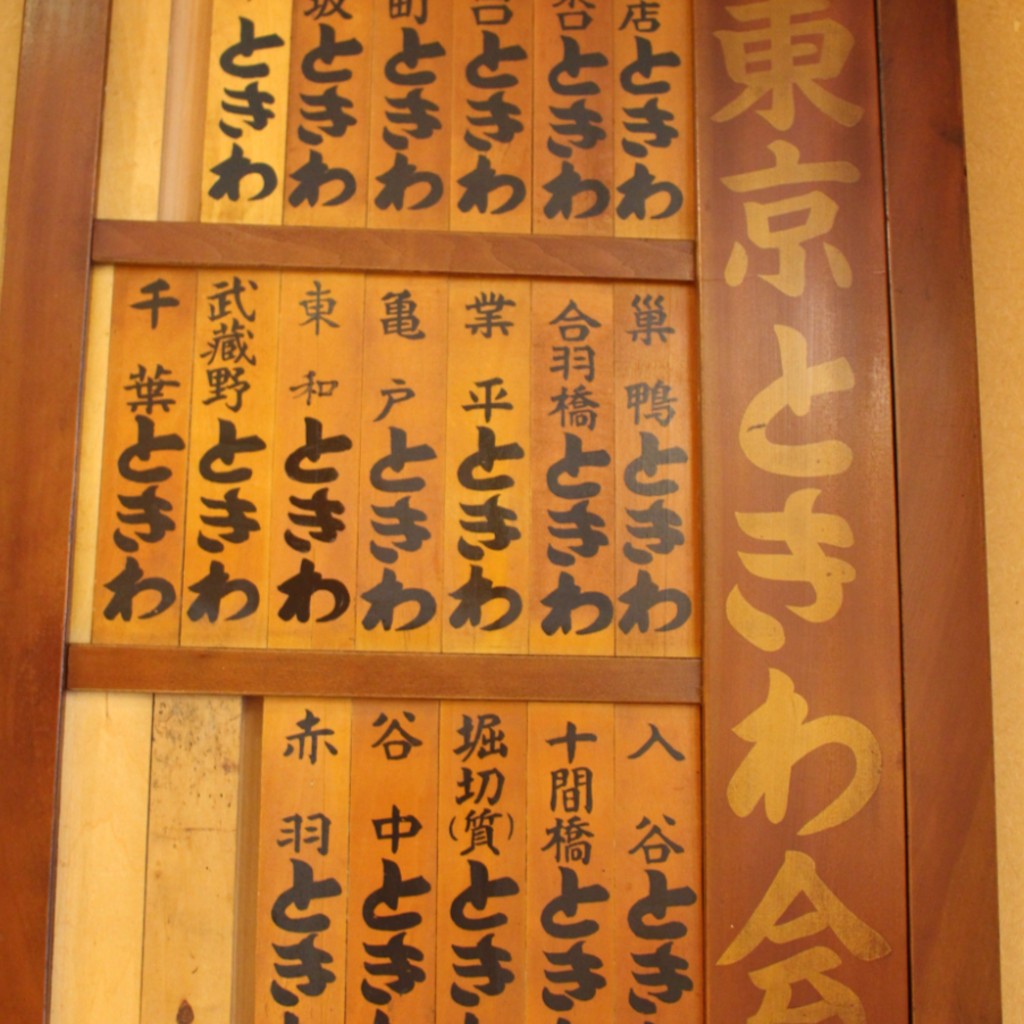 東京ときわ会
店ときわ
ときわ
ときわ
町ときわ
坂ときわ
ときわ
巣鴨ときわ
合羽橋ときわ
業平ときわ
亀戸ときわ
東和ときわ
武蔵野ときわ
千葉ときわ
入谷とき
十間橋とき
堀切(質)とき
谷中とき
赤羽とき